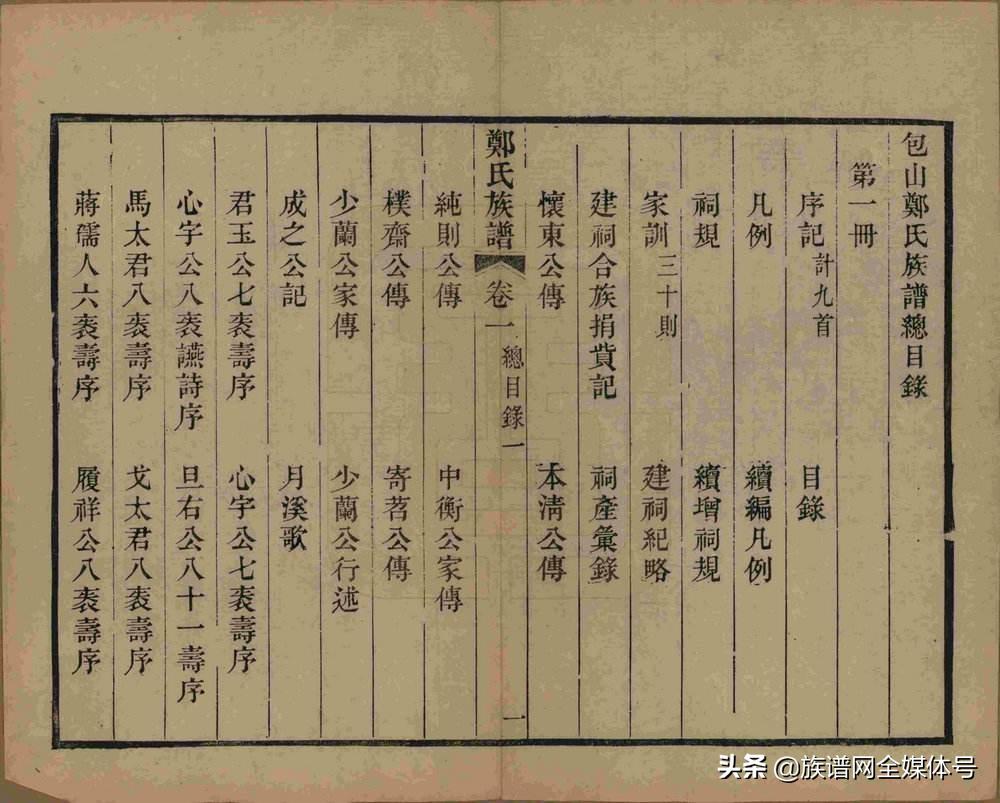 包山鄭氏族譜總目錄
第一冊
序記 計九首 目錄
凡例 續編凡例
祠規 續增祠規
家訓 三十則 建祠紀略
建祠合族捐貲記 祠產彙錄
懷東公傳 本清公傳
鄭氏族譜 卷一 總目錄一 一
純則公傳 中衡公家傳
樸齋公傳 寄茗公傳
少蘭公家傳 少蘭公行述
成之公記 月溪歌
君玉公七袠壽序 心宇公七袠壽序
心字公八袠讌詩序 旦右公八十一壽序
馬太君八袠壽序 戈太君八袠壽序
蔣儒人六袠壽序 履祥公八袠壽序
头条 @族谱网全媒体号